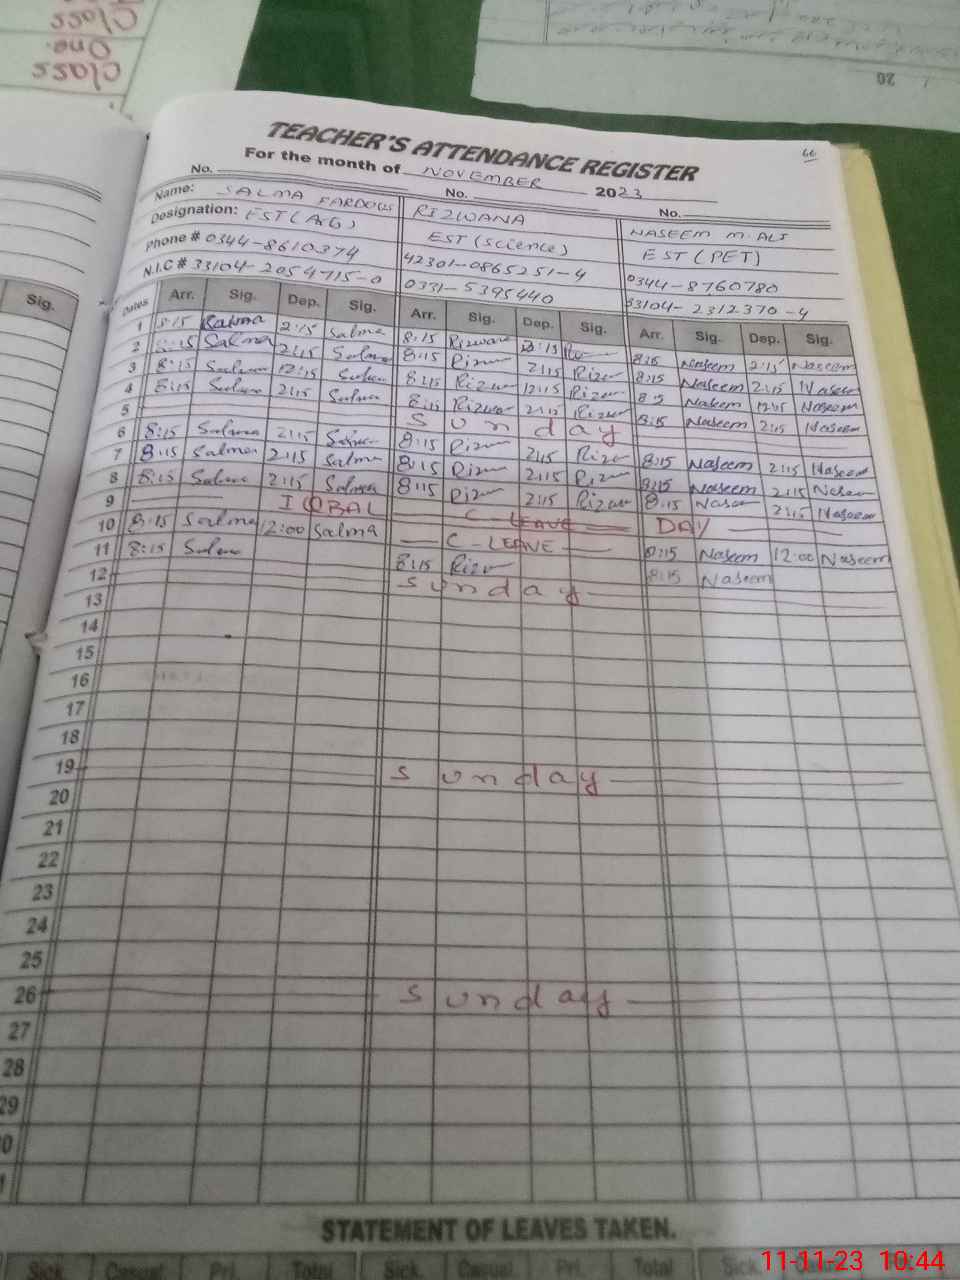 Class
One
Class
20
66
TEACHER'S ATTENDANCE REGISTER
For the month of NOVEMBER 2023
No. No. No.
Name: SALMA FARDOUS RIZWANA NASEEM M. ALI
Designation: EST (A&G) EST (Science) EST (PET)
Phone # 0344-8610374 42301-0865251-4 0344-8760780
N.I.C # 33104-2054715-0 0331-5395440 33104-2312370-4
Sig.
Dates Arr. Sig. Dep. Sig. Arr. Sig. Dep. Sig. Arr. Sig. Dep. Sig.
1 8:15 Salma 2:15 Salma 8:15 Rizwana 2:15 8:15 Naseem 2:15 Naseem
2 8:15 Salma 2:15 Salma 8:15 Rizwan 2:15 Rizwan 8:15 Naseem 2:15 Naseem
3 8:15 Salma 12:15 Salma 8:15 Rizwan 12:15 Rizwan 8:15 Naseem 12:15 Naseem
4 8:15 Salma 2:15 Salma 8:15 Rizwan 2:15 Rizwan 8:15 Naseem 2:15 Naseem
5 Sunday
6 8:15 Salma 2:15 Salma 8:15 Rizwan 2:15 Rizwan 8:15 Naseem 2:15 Naseem
7 8:15 Salma 2:15 Salma 8:15 Rizwan 2:15 Rizwan 8:15 Naseem 2:15 Naseem
8 8:15 Salma 2:15 Salma 8:15 Rizwan 2:15 Rizwan 8:15 Naseem 2:15 Naseem
9 IQBAL C-LEAVE DAY
10 8:15 Salma 12:00 Salma C-LEAVE 8:15 Naseem 12:00 Naseem
11 8:15 Salma 8:15 Rizwan 8:15 Naseem
12 Sunday
13
14
15
16
17
18
19 Sunday
20
21
22
23
24
25
26 Sunday
27
28
29
0
STATEMENT OF LEAVES TAKEN.
Sick Casual Pri. Total Sick Casual Pri. Total Sick
11-11-23 10:44